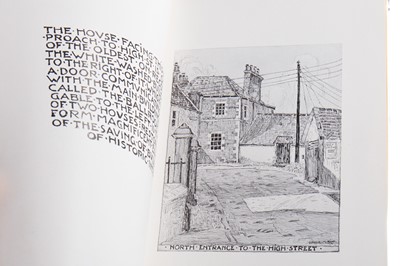 THE·HOUSE·FACING
PROACH·
OF·THE·OLDEST·
THE·WHITE·WASHED
TO·THE·RIGHT·OF·
A·DOOR·COMM
WITH·THE·MAIN·
CALLED·THE·BARN
GABLE·TO·THE·
OF·TWO·HOUSES·
FORM·MAGNIFICENT
OF·THE·SAVING·OF
OF·HISTORIC
·NORTH·ENTRANCE·TO·THE·HIGH·STREET·